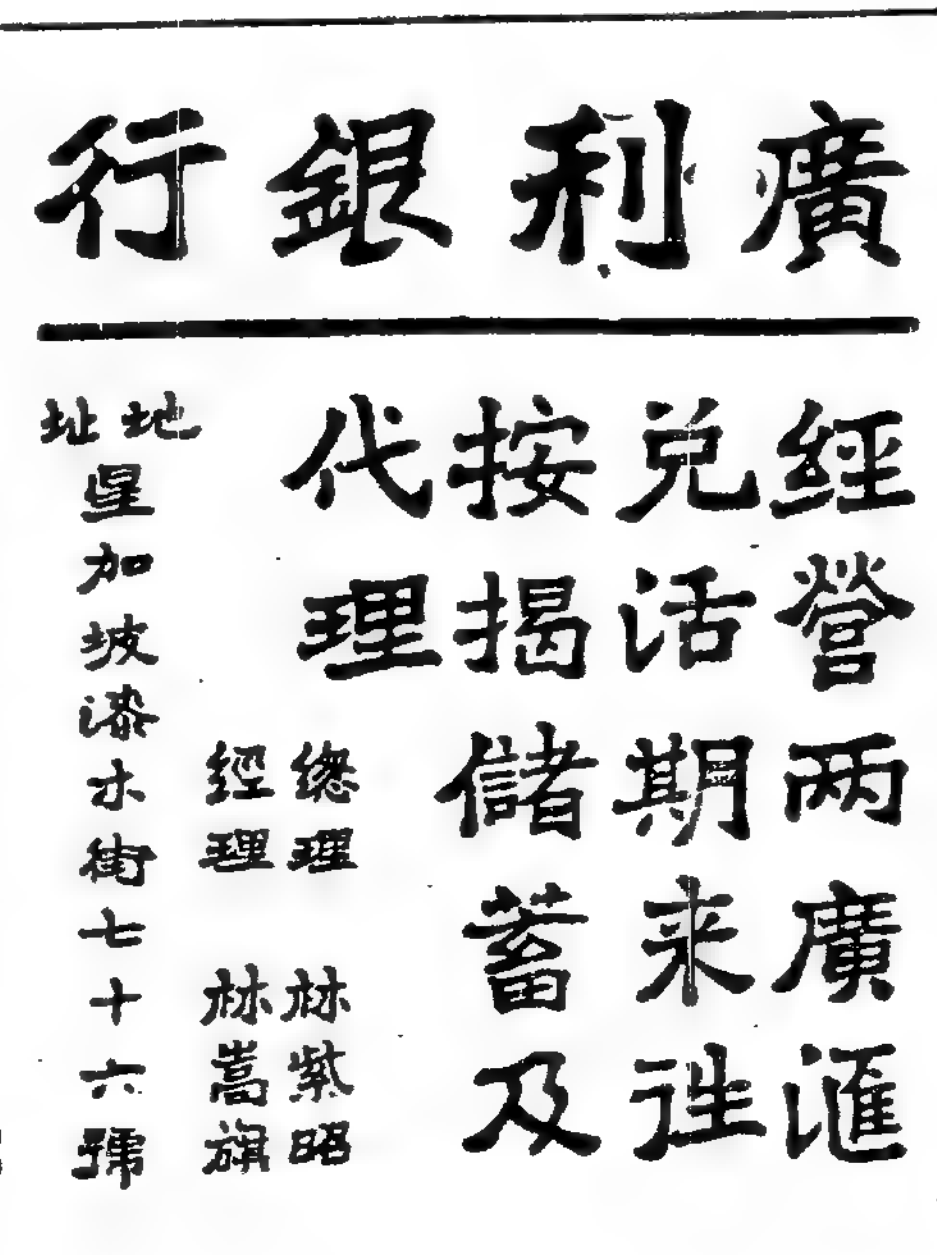 廣利銀行
經營两廣滙
兑活期来往
按揭儲蓄及
代理
總理 林紫照
經理 林嵩旗
地址
星加坡漆木街七十六號